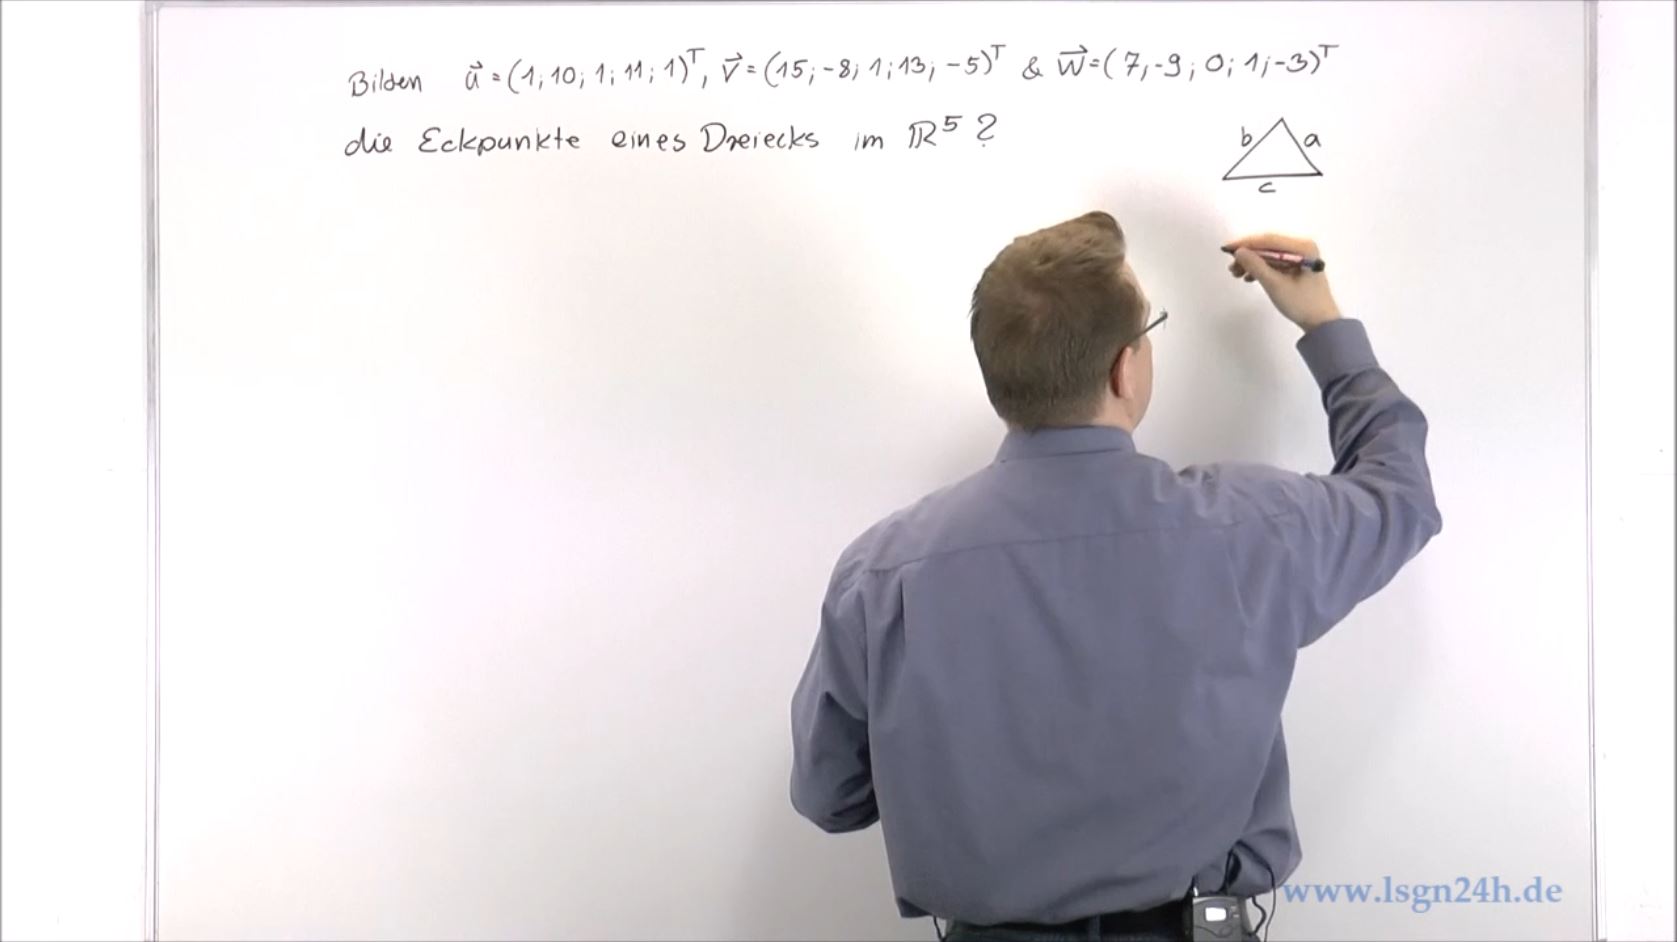 Bilden u⃗ = (1; 10; 1; 11; 1)ᵀ, v⃗ = (15; -8; 1; 13; -5)ᵀ & w⃗ = (7; -9; 0; 1; -3)ᵀ
die Eckpunkte eines Dreiecks im ℝ⁵ ?
b a
c
www.lsgn24h.de